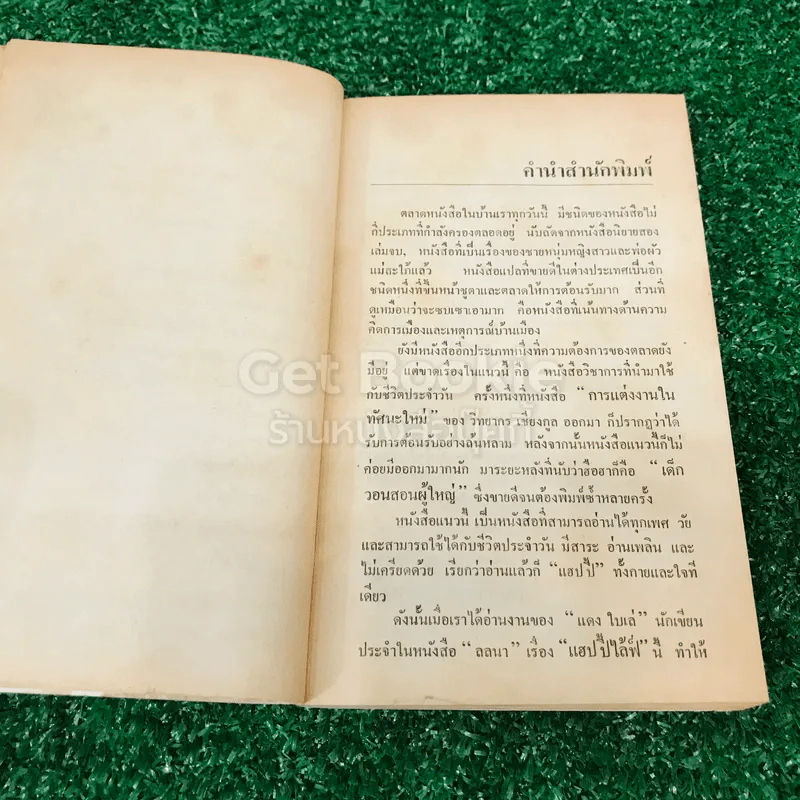 คำนำสำนักพิมพ์
ตลาดหนังสือในบ้านเราทุกวันนี้ มีชนิดของหนังสือไม่
กี่ประเภทที่กำลังครองตลอดอยู่ นับลัดจากหนังสือนิยายสอง
เล่มจบ, หนังสือที่เป็นเรื่องของชายหนุ่มหญิงสาวและพ่อผัว
แม่สะใภ้แล้ว หนังสือแปลที่ขายดีในต่างประเทศเป็นอีก
ชนิดหนึ่งที่ขึ้นหน้าชูตาและตลาดให้การต้อนรับมาก ส่วนที่
ดูเหมือนว่าจะซบเซาเอามาก คือหนังสือที่เน้นทางด้านความ
คิดการเมืองและเหตุการณ์บ้านเมือง
ยังมีหนังสืออีกประเภทหนึ่งที่ความต้องการของตลาดยัง
มีอยู่ แต่ขาดเรื่องในแนวนี้ คือ หนังสือวิชาการที่นำมาใช้
กับชีวิตประจำวัน ครั้งหนึ่งที่หนังสือ “การแต่งงานใน
ทัศนะใหม่” ของ วิทยากร เชียงกูล ออกมา ก็ปรากฏว่าได้
รับการต้อนรับอย่างล้นหลาม หลังจากนั้นหนังสือแนวนี้ก็ไม่
ค่อยมีออกมามากนัก มาระยะหลังที่นับว่าฮือฮาก็คือ “เด็ก
วอนสอนผู้ใหญ่” ซึ่งขายดีจนต้องพิมพ์ซ้ำหลายครั้ง
หนังสือแนวนี้ เป็นหนังสือที่สามารถอ่านได้ทุกเพศ วัย
และสามารถใช้ได้กับชีวิตประจำวัน มีสาระ อ่านเพลิน และ
ไม่เครียดด้วย เรียกว่าอ่านแล้วก็ “แฮปปี้” ทั้งกายและใจที
เดียว
ดังนั้นเมื่อเราได้อ่านงานของ “แดง ใบเล่” นักเขียน
ประจำในหนังสือ “ลลนา” เรื่อง “แฮปปี้ไล้ฟ์” นี้ ทำให้
Get Bookie
ร้านหนังสือเก็ทบุ๊คกี้